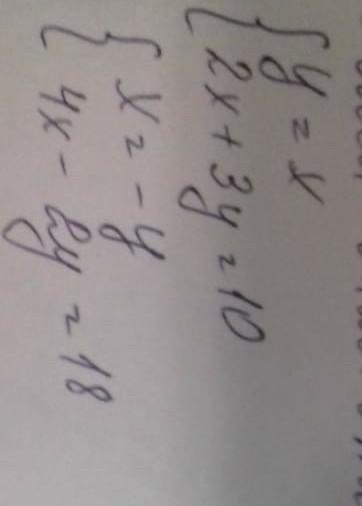 { y = x
2x + 3y = 10
{ x = -y
4x - 2y = 18